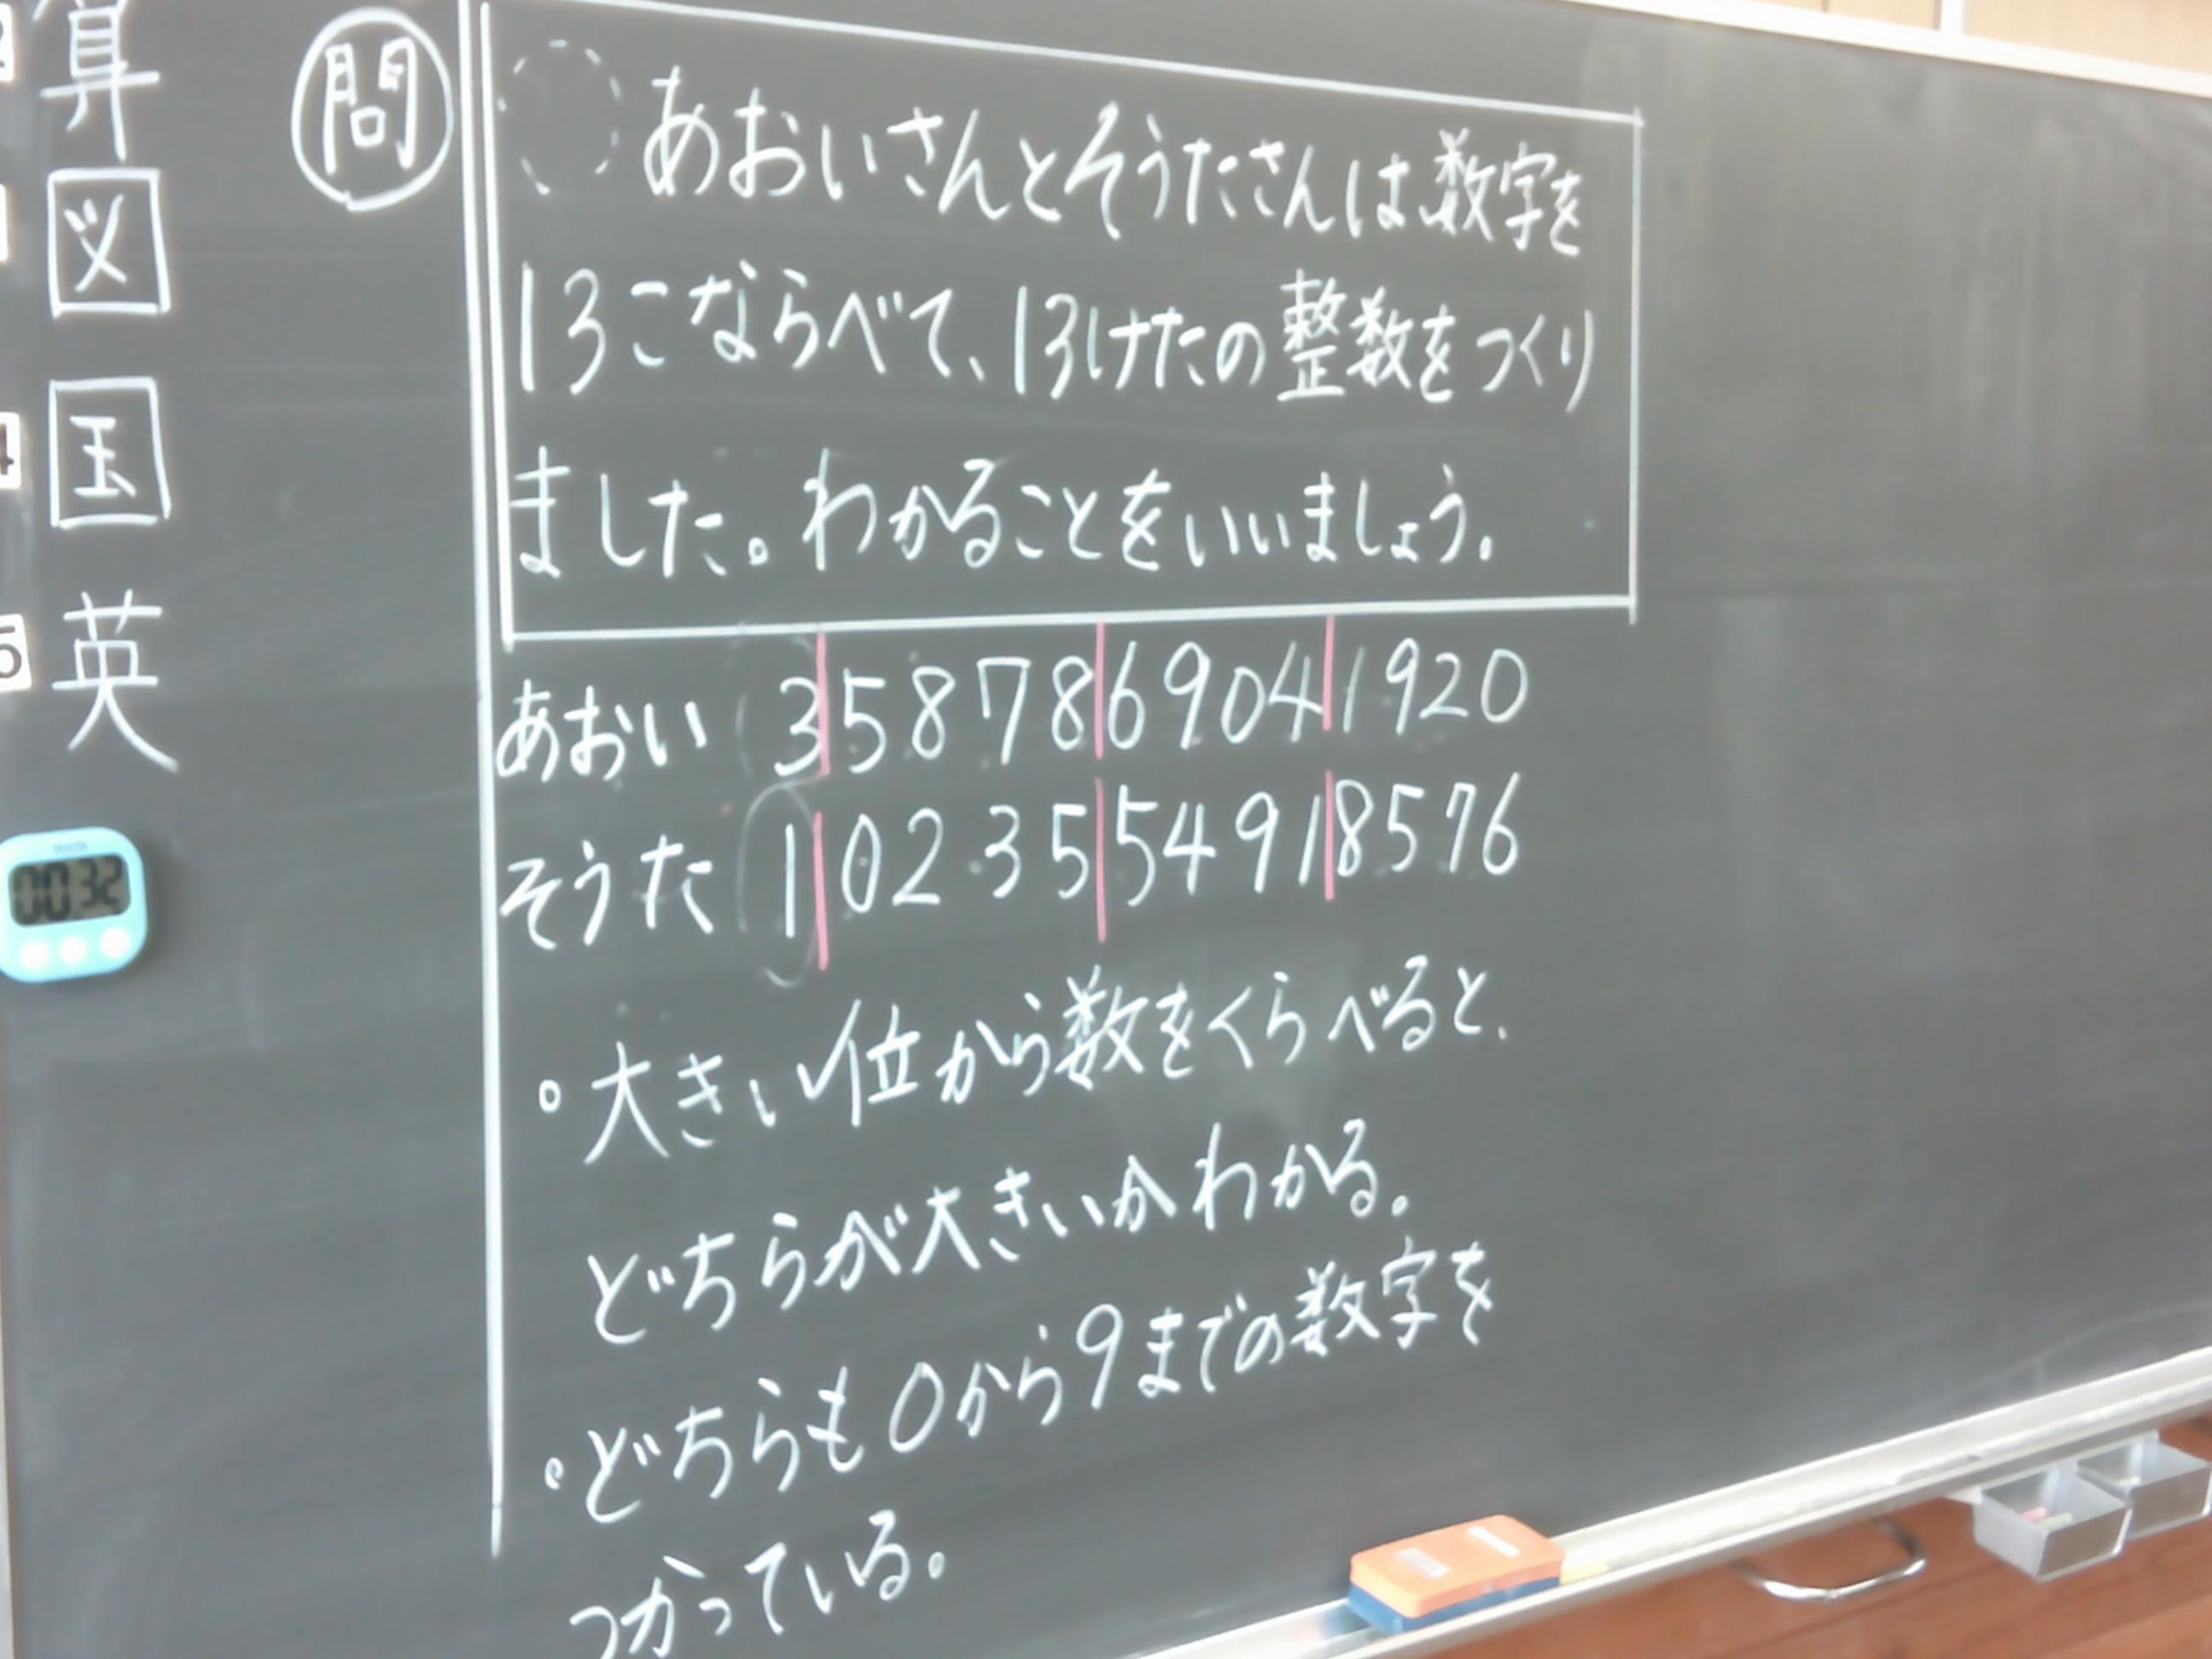 算
図
国
英
4
5
00:32
問
あおいさんとそうたさんは数字を
13こならべて、13けたの整数をつくり
ました。わかることをいいましょう。
あおい 3587869041920
そうた 1023554918576
・大きい位から数をくらべると、
どちらが大きいかわかる。
・どちらも0から9までの数字を
つかっている。